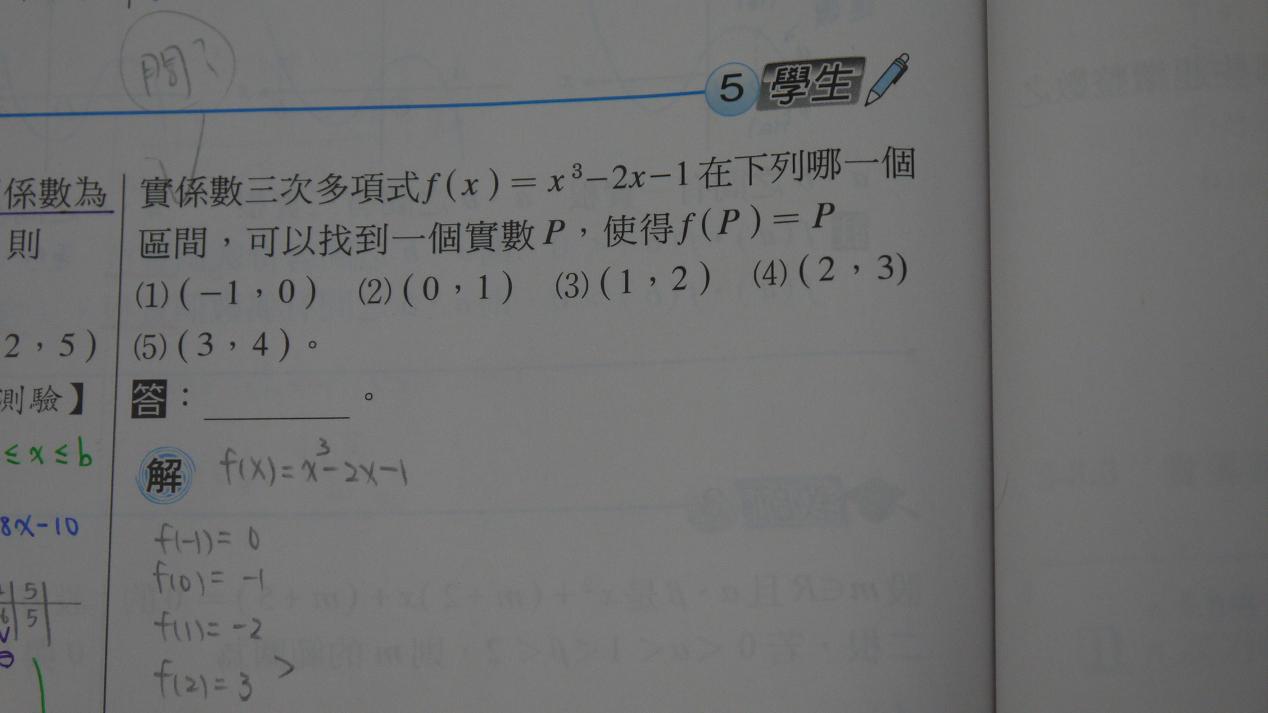 問?
5 學生
係數為
則
2,5)
測驗】
≤x≤b
8x-10
5
5
實係數三次多項式f(x)=x³-2x-1在下列哪一個
區間,可以找到一個實數P,使得f(P)=P
(1)(-1,0) (2)(0,1) (3)(1,2) (4)(2,3)
(5)(3,4)。
答:________。
解 f(x)=x³-2x-1
f(-1)=0
f(0)=-1
f(1)=-2
f(2)=3 >